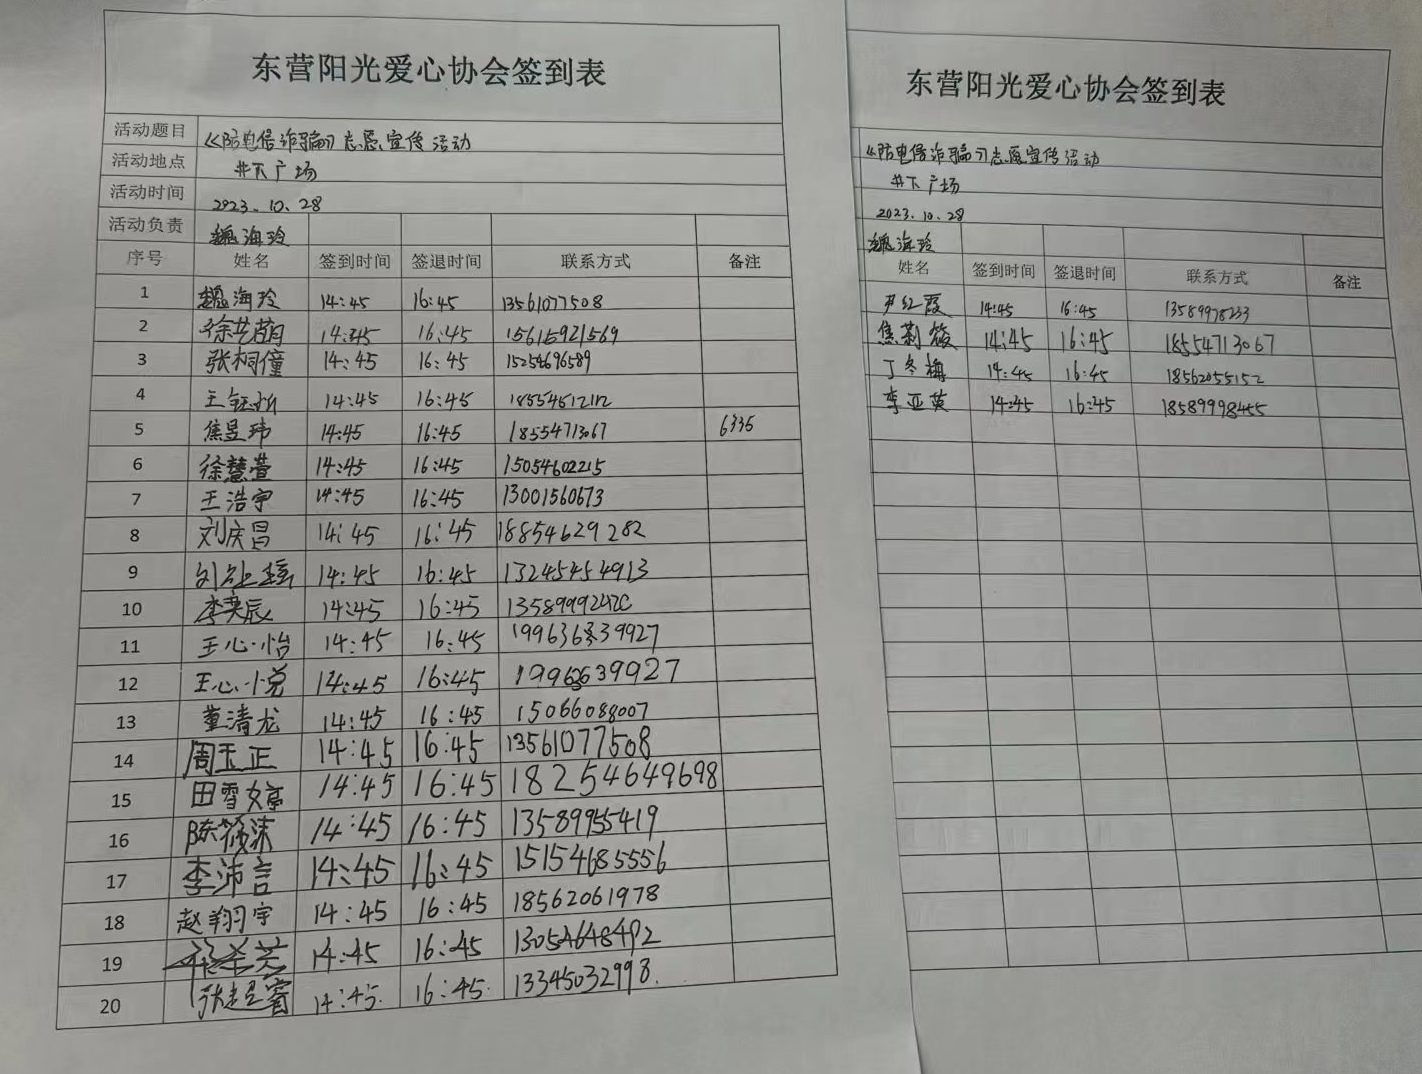 东营阳光爱心协会签到表
活动题目 《防电信诈骗》志愿宣传活动
活动地点 井下广场
活动时间 2023.10.28
活动负责 魏海玲
序号 姓名 签到时间 签退时间 联系方式 备注
1 魏海玲 14:45 16:45 13561077508
2 徐艺萌 14:45 16:45 15615921569
3 张桐僮 14:45 16:45 15254696589
4 14:45 16:45
5 焦昱玮 14:45 16:45 18554713067 6335
6 徐慧萱 14:45 16:45 15054602215
7 王浩宇 14:45 16:45 13001560673
8 刘庆昌 14:45 16:45 18854629282
9 14:45 16:45 13245454913
10 李奕辰 14:45 16:45
11 王心怡 14:45 16:45
12 王心悦 14:45 16:45
13 董清龙 14:45 16:45 15066088007
14 周玉正 14:45 16:45 13561077508
15 田雪婷 14:45 16:45 18254649698
16 陈筱沫 14:45 16:45 13589955419
17 李沛言 14:45 16:45 15154685556
18 赵翔宇 14:45 16:45 18562061978
19 14:45 16:45 13054648492
20 张趁睿 14:45. 16:45. 13345032998.
东营阳光爱心协会签到表
《防电信诈骗》志愿宣传活动
井下广场
2023.10.28
魏海玲
姓名 签到时间 签退时间 联系方式 备注
尹红霞 14:45 16:45 13589978233
焦莉筱 14:45 16:45 18554713067
丁冬梅 14:45 16:45 18562055152
李亚英 14:45 16:45 18589998455